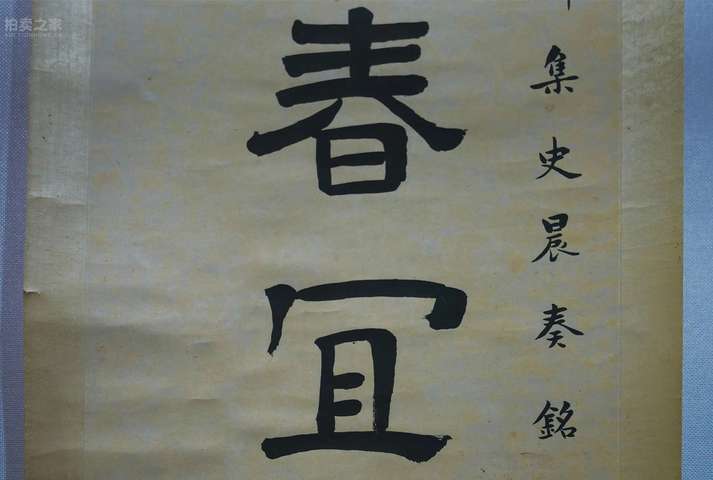 春冝
集史晨奏銘
拍卖之家